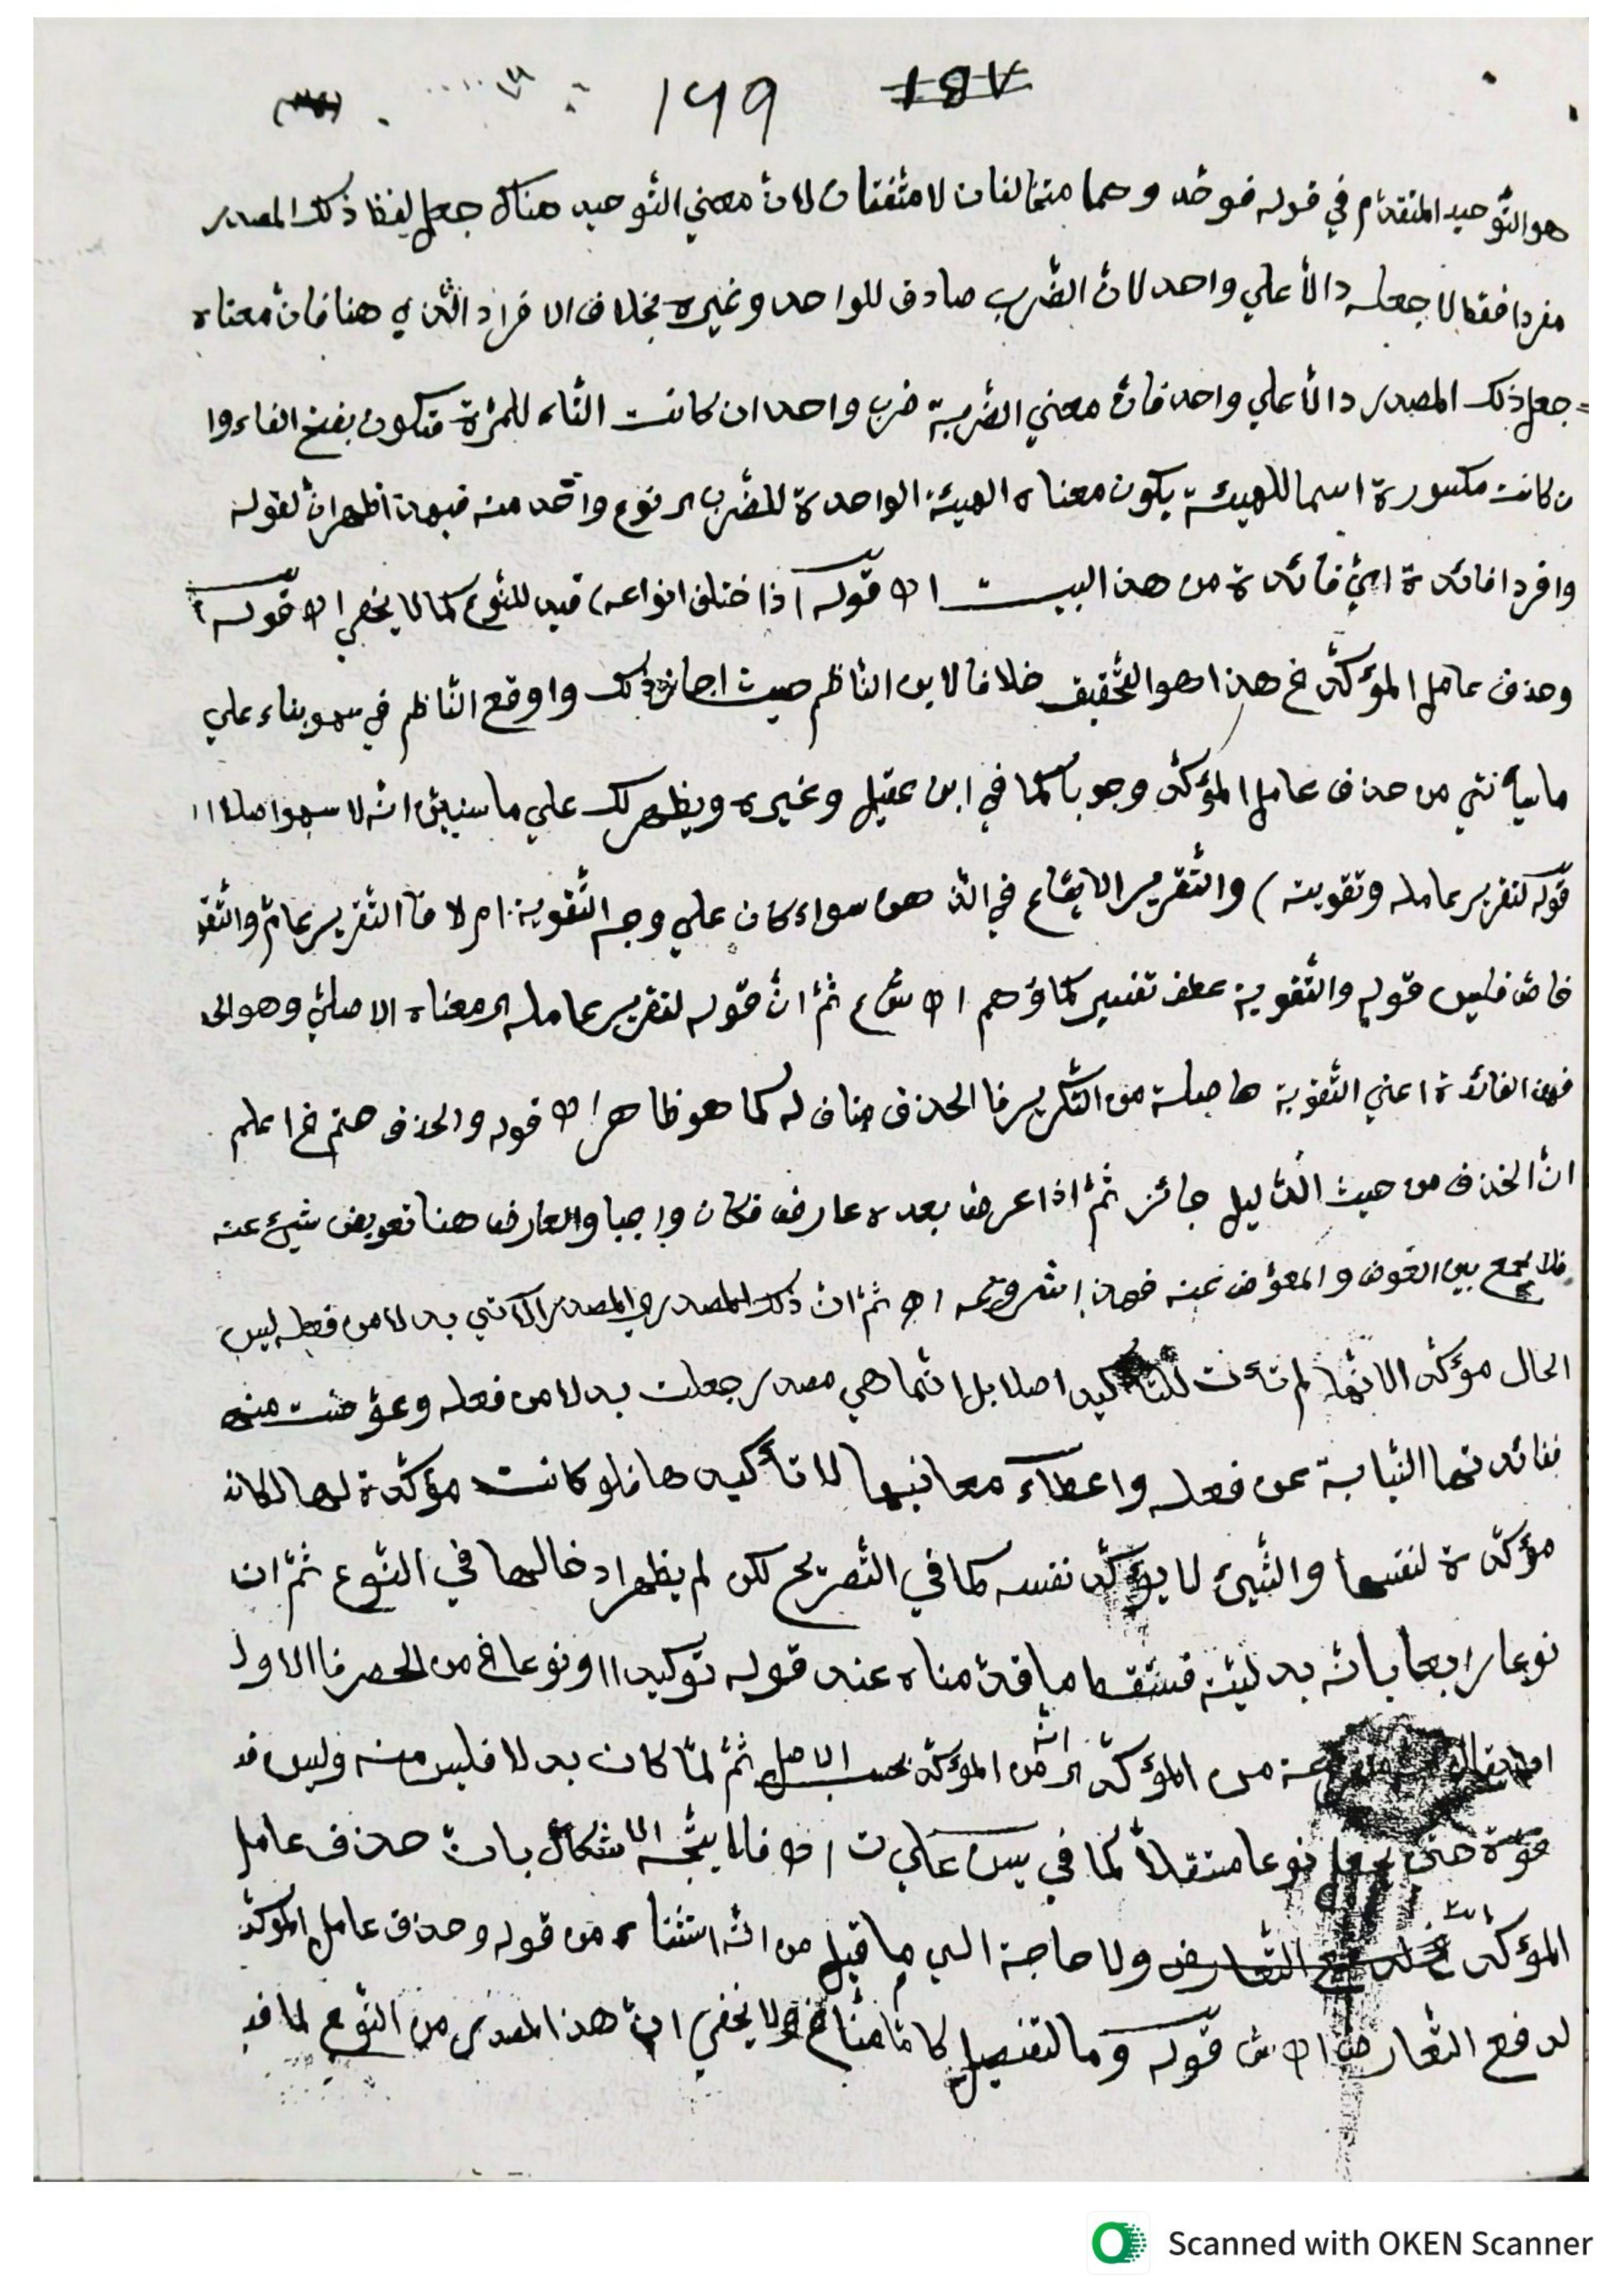 ١٤٩ ١٤٧
هو التّوحيد المتقدّم في قوله فوحّد وهما متخالفان لا متّفقان لانّ معني التّوحيد هناك جعل لفظ ذلك المصدر
مفردا فقط لا جعله دالاّ علي واحد لانّ الضّرب صادق للواحد وغيره بخلاف الافراد الّذي هنا فانّ معناه
جعل ذلك المصدر دالاّ علي واحد فانّ معني الضّربة ضرب واحد ان كانت التّاء للمرّة فتكون بفتح الفاء وا
ن كانت مكسورة اسما للهيئة يكون معناه الهيئة الواحدة للضّرب اي نوع واحد منه فبهذا ظهر انّ لقوله
وافردا فائدة ايّ فائدة من هذا البيت اه قوله اذا ختلف انواعه) قيد للنّوع كما لا يخفي اه قوله
وحذف عامل المؤكّد خ هذا هو التّحقيق خلافا لابن النّاظم حيث اجاز ذلك واوقع النّاظم في سهو بناء علي
ما سيأتي من حذف عامل المؤكّد وجوبا كما في ابن عقيل وغيره ويظهر لك علي ما سنبيّن انّه لا سهو اصلا اه
قوله لتقرير عامله وتقويته) والتّقرير الايقاع في الذّهن سواء كان علي وجه التّقوية ام لا فالتّقرير عامّ والتّقو
خاصّ فليس قوله والتّقوية عطف تفسير كما وُهم اه ش ع ثمّ انّ قوله لتقرير عامله اي معناه الاصليّ وهو الحد
فهذه الفائدة اعني التّقوية حاصلة من التّكرير فالحذف مناف له كما هو ظاهر اه قوله والحذف حتم خ اعلم
انّ الحذف من حيث الدّليل جائز ثمّ اذا عرض بعده عارض فكان واجبا والعارض هنا تعويض شيئ عنه
فلا يجمع بين العوض والمعوّض عنه فهذا اشرفيّه اه ثمّ انّ ذلك المصدر اي المصدر الآتي بدلا من فعله ليس
الحال مؤكّد الانّها لم تأت للتّأكيد اصلا بل انّما هي مصدر جعلت بدلا من فعله وعوّضت منه
ففائدتها النّيابة عن فعله واعطآء معانيها لا تأكيدها فلو كانت مؤكّدة لها لكانت
مؤكّدة لنفسها والشّيئ لا يؤكّد نفسه كما في التّصريح لكن لم يظهر ادخالها في النّوع ثمّ ان
نوعا رابعا بانّه بدليّته فينتقض ما قدّمناه عند قوله توكيدا او نوعا خ من الحصر فالاولي
من المؤكّد اي انّه من المؤكّد بحسب الاصل ثمّ لمّا كان بدلا فليس منه وليس فيه
قوّة حتّي يجعل نوعا مستقلاّ كما في يس علي ت اه فلا يتّجه الاشكال بانّ حذف عامل
المؤكّد التّعارض ولا حاجة الي ما قيل من انّه استثناء من قوله وحذف عامل المؤكّد
لدفع التّعارض اه ش قوله وما لتفصيل كامّا منّا خ ولا يخفي انّ هذا المصدر من النّوع لما فيه
Scanned with OKEN Scanner